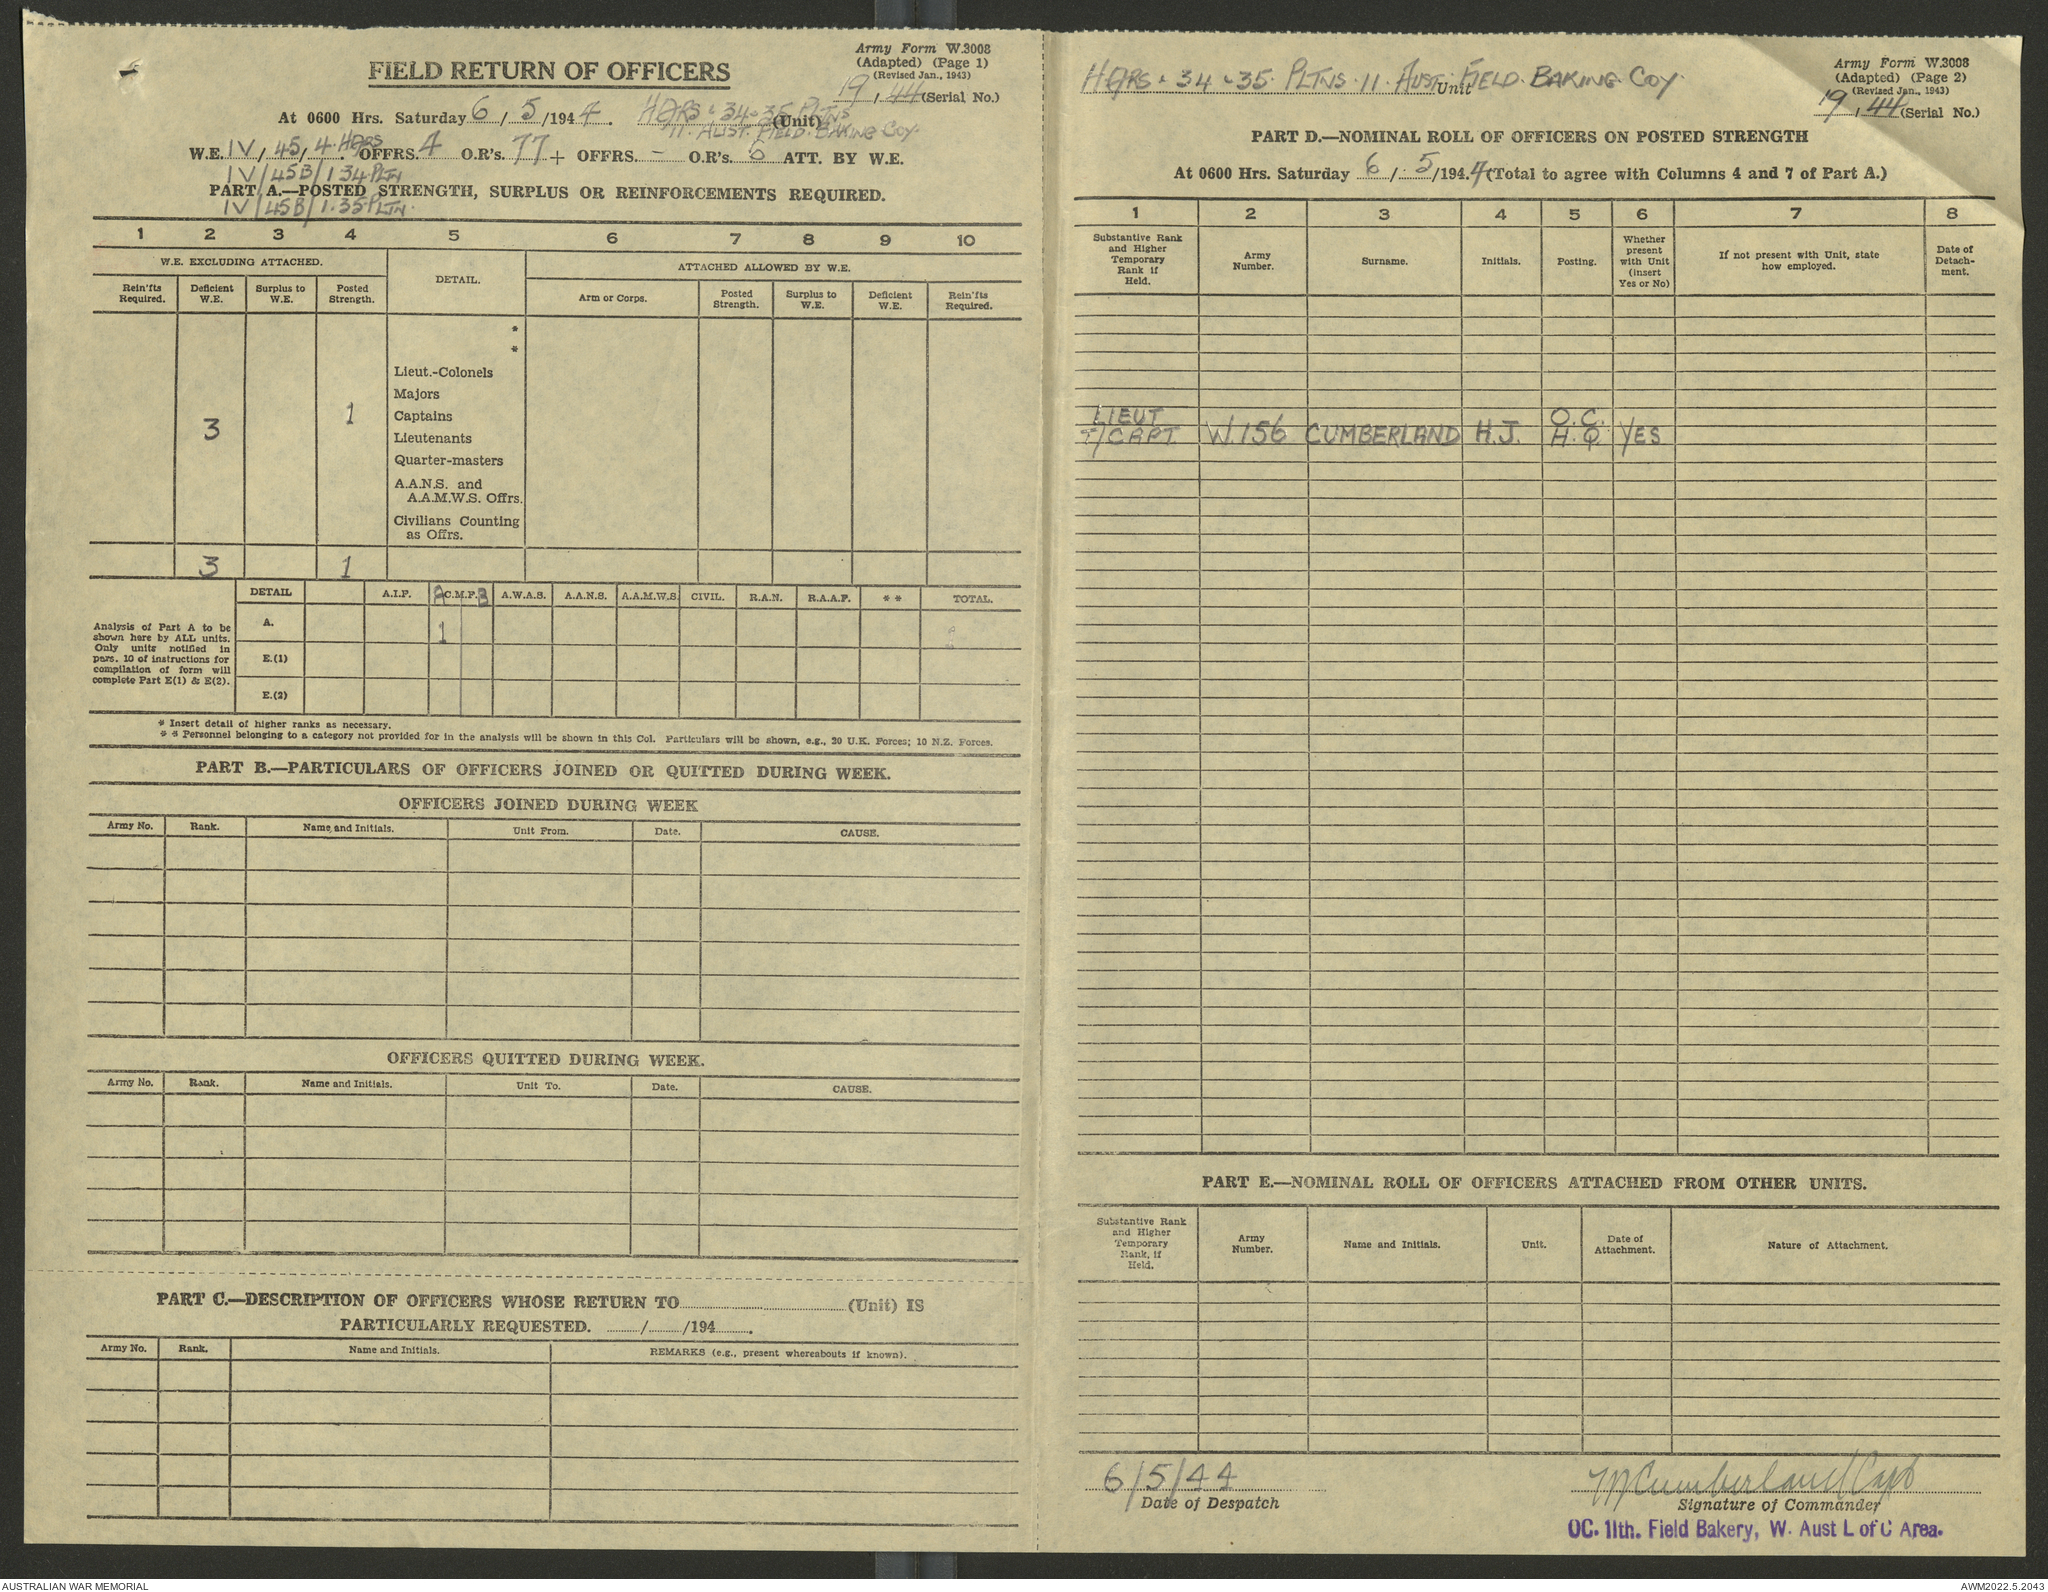 Army Form W.3008
(Adapted) (Page 1)
(Revised Jan., 1943)
19, 44 (Serial No.)
FIELD RETURN OF OFFICERS
At 0600 Hrs. Saturday 6/5/1944. HQRS & 34 & 35 PLTNS (Unit)
11. AUST. FIELD. BAKING COY.
W.E. IV/45/4. HQRS OFFRS. 4 O.R's. 77 + OFFRS. - O.R's. 6 ATT. BY W.E.
IV/45B/1 34 PLTN
PART A.—POSTED STRENGTH, SURPLUS OR REINFORCEMENTS REQUIRED.
IV/45B/1. 35 PLTN.
1 2 3 4 5 6 7 8 9 10
W.E. EXCLUDING ATTACHED.
DETAIL.
ATTACHED ALLOWED BY W.E.
Rein'fts Required.
Deficient W.E.
Surplus to W.E.
Posted Strength.
Arm or Corps.
Posted Strength.
Surplus to W.E.
Deficient W.E.
Rein'fts Required.
*
*
Lieut.-Colonels
Majors
Captains
3 1
Lieutenants
Quarter-masters
A.A.N.S. and
A.A.M.W.S. Offrs.
Civilians Counting
as Offrs.
3 1
DETAIL A.I.F. A C.M.F. B A.W.A.S. A.A.N.S. A.A.M.W.S. CIVIL. R.A.N. R.A.A.F. * * TOTAL.
Analysis of Part A to be
shown here by ALL units.
Only units notified in
para. 10 of instructions for
compilation of form will
complete Part E(1) & E(2).
A. 1
E.(1)
E.(2)
* Insert detail of higher ranks as necessary.
* * Personnel belonging to a category not provided for in the analysis will be shown in this Col. Particulars will be shown, e.g., 20 U.K. Forces; 10 N.Z. Forces.
PART B.—PARTICULARS OF OFFICERS JOINED OR QUITTED DURING WEEK.
OFFICERS JOINED DURING WEEK
Army No. Rank. Name and Initials. Unit From. Date. CAUSE.
OFFICERS QUITTED DURING WEEK.
Army No. Rank. Name and Initials. Unit To. Date. CAUSE.
PART C.—DESCRIPTION OF OFFICERS WHOSE RETURN TO (Unit) IS
PARTICULARLY REQUESTED. / /194 .
Army No. Rank. Name and Initials. REMARKS (e.g., present whereabouts if known).
Army Form W.3008
(Adapted) (Page 2)
(Revised Jan., 1943)
19, 44 (Serial No.)
HQRS & 34 & 35 PLTNS. 11. AUST. FIELD. BAKING. COY.
Unit
PART D.—NOMINAL ROLL OF OFFICERS ON POSTED STRENGTH
At 0600 Hrs. Saturday 6/5/1944 (Total to agree with Columns 4 and 7 of Part A.)
1 2 3 4 5 6 7 8
Substantive Rank and Higher Temporary Rank if Held.
Army Number.
Surname.
Initials.
Posting.
Whether present with Unit (insert Yes or No)
If not present with Unit, state how employed.
Date of Detach-ment.
LIEUT O.C.
T/CAPT W.156 CUMBERLAND H.J. H.Q YES
PART E.—NOMINAL ROLL OF OFFICERS ATTACHED FROM OTHER UNITS.
Substantive Rank and Higher Temporary Rank, if Held.
Army Number.
Name and Initials.
Unit.
Date of Attachment.
Nature of Attachment.
6/5/44
Date of Despatch
Cumberland Capt
Signature of Commander
OC. 11th. Field Bakery, W. Aust L of C Area.
AUSTRALIAN WAR MEMORIAL
AWM2022.5.2043